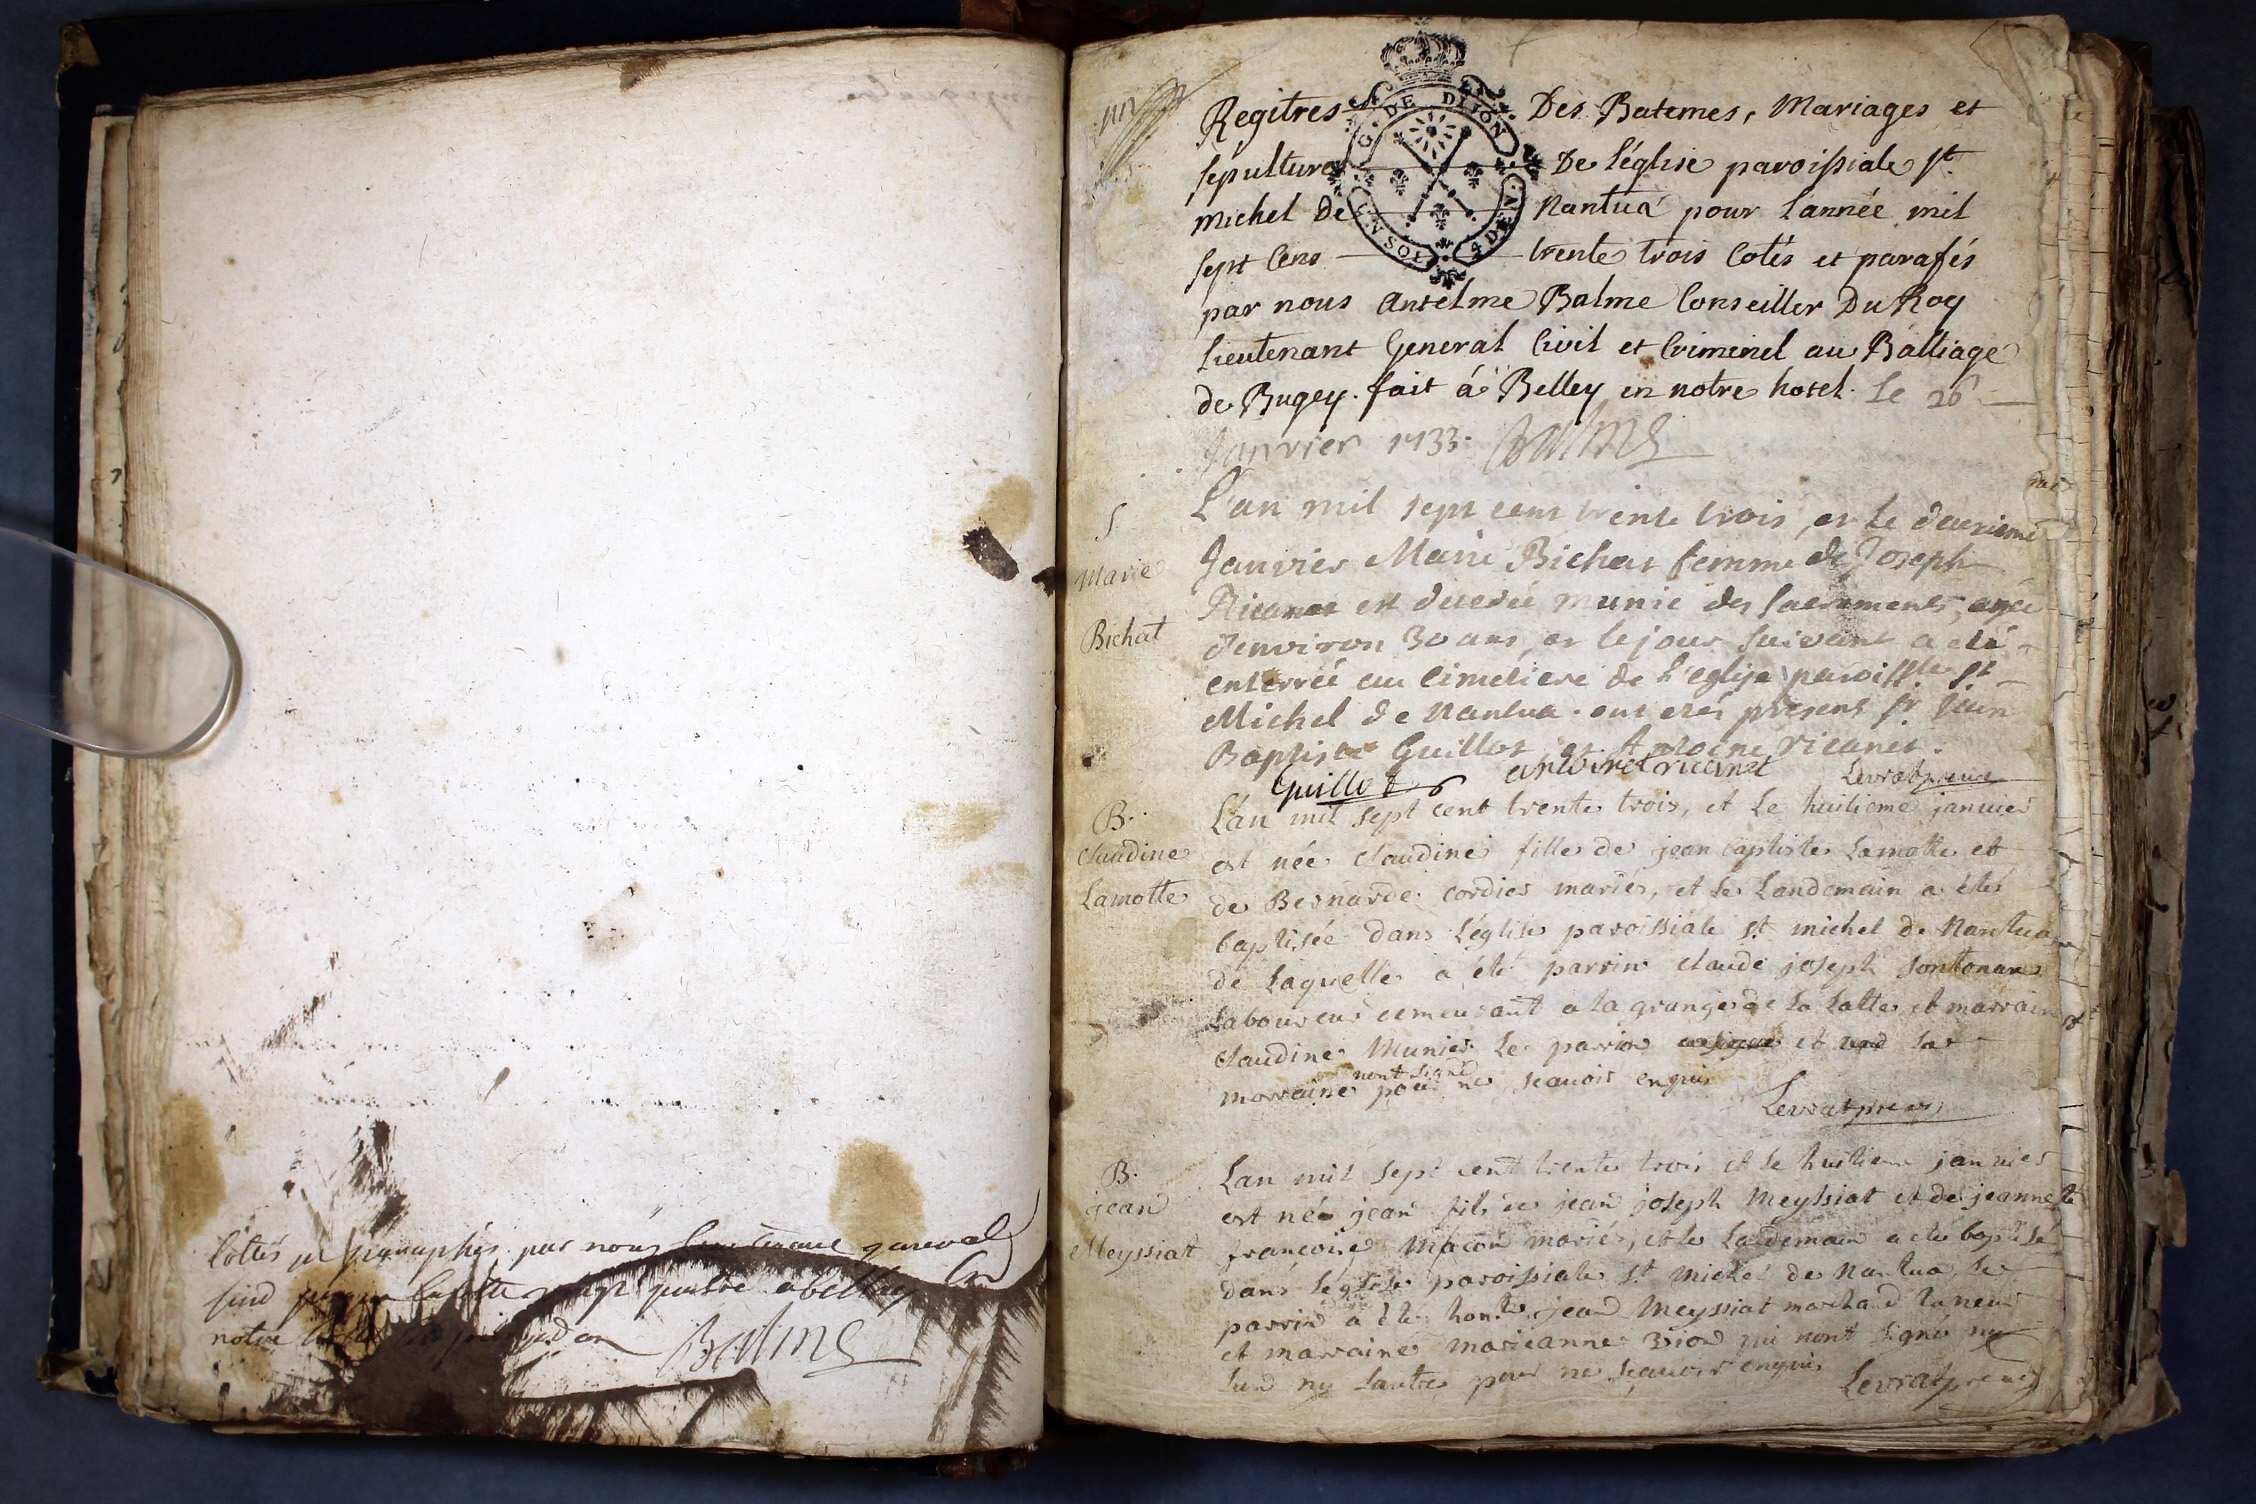 Cottés et paraphés par nous Lieutenant general
notre
Balme
Regitres Des Batemes, Mariages et
sépultures De l'église paroissiale st.
michel De Nantua pour l'année mil
sept Cens trente trois Cotés et parafés
par nous Antelme Balme Conseiller Du Roy
Lieutenant General Civil et Criminel au Balliage
de Bugey. fait á Belley en notre hotel. Le 26
Janvier 1733. Balme
G. DE DIJON
UN SOL 4 DEN.
S.
Marie
Bichat
L'an mil sept cent trente trois, et le deuxieme
Janvier Marie Bichat femme de Joseph
Ricanet est decedée munie des sacrements, agée
d'environ 30 ans, et le jour suivant a eté
enterrée au cimetiere de l'eglise paroissle st
Michel de Nantua. ont etés present sr Jean
Baptiste Guillot, et Antoine Ricanet.
Guillot antoine ricanet Levrat
B.
Claudine
Lamotte
L'an mil sept cent trente trois, et Le huitieme janvier
est née Claudine fille de jean baptiste Lamotte et
de Bernarde cordier mariés, et le Landemain a étés
baptisée dans l'église paroissiale st michel de Nantua
de Laquelle a été parrin claude joseph sontonax
Laboureur demeurant a la grange de La Latte et marraine
claudine Munier Le parrin et La
marraine n'ont signé pour ne scauoir enquis
Levrat
B.
jean
Meyssiat
L'an mil sept cent trente trois et le huitieme janvier
est né jean fils de jean joseph Meyssiat et de jeanne
françoise Macon mariés, et le Landemain a été baptisé
dans l'eglise paroissiale st michel de Nantua, le
parrin a été honble jean Meyssiat marchand taneur
et marraine marieanne Brion qui n'ont signé ny
l'un ny l'autre pour ne sçauoir enquis Levrat